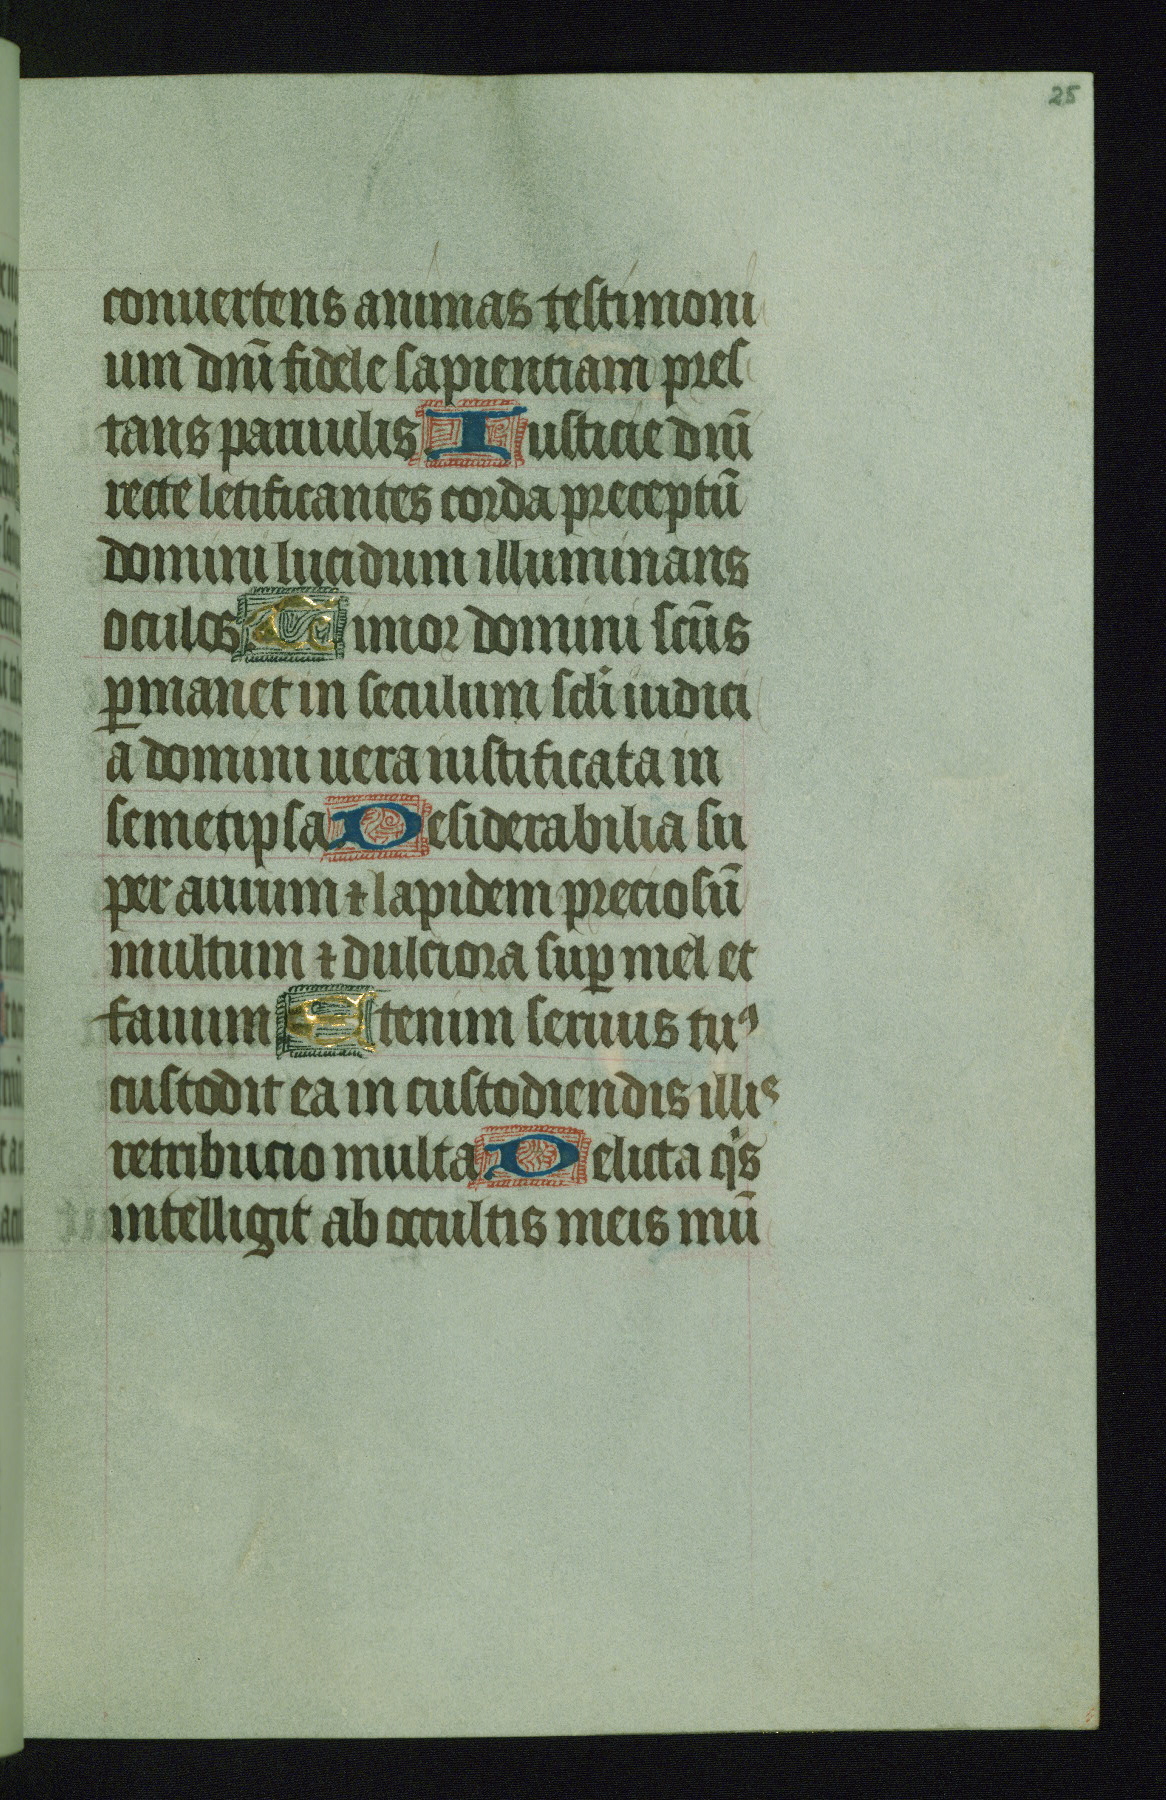 25
conuertens animas testimoni
um dnĩ fidele sapientiam pres
tans paruulis Iusticie dnĩ
recte letificantes corda preceptũ
domini lucidum illuminans
oculos Timor domini scũs
ꝑmanet in seculum scĺi iudici
a domini uera iustificata in
semetipsa Desiderabilia su
per aurum ⁊ lapidem preciosũ
multum ⁊ dulciora suꝑ mel et
fauum Etenim seruus tuꝰ
custodit ea in custodiendis illis
retribucio multa Delicta qͥs
intelligit ab occultis meis mũ